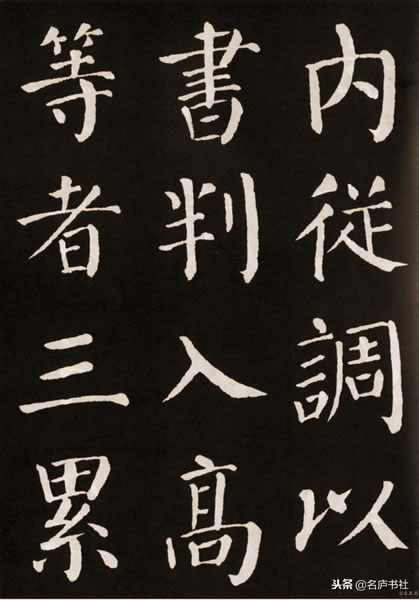 内從調以
書判入髙
等者三累
头条 @名庐书社